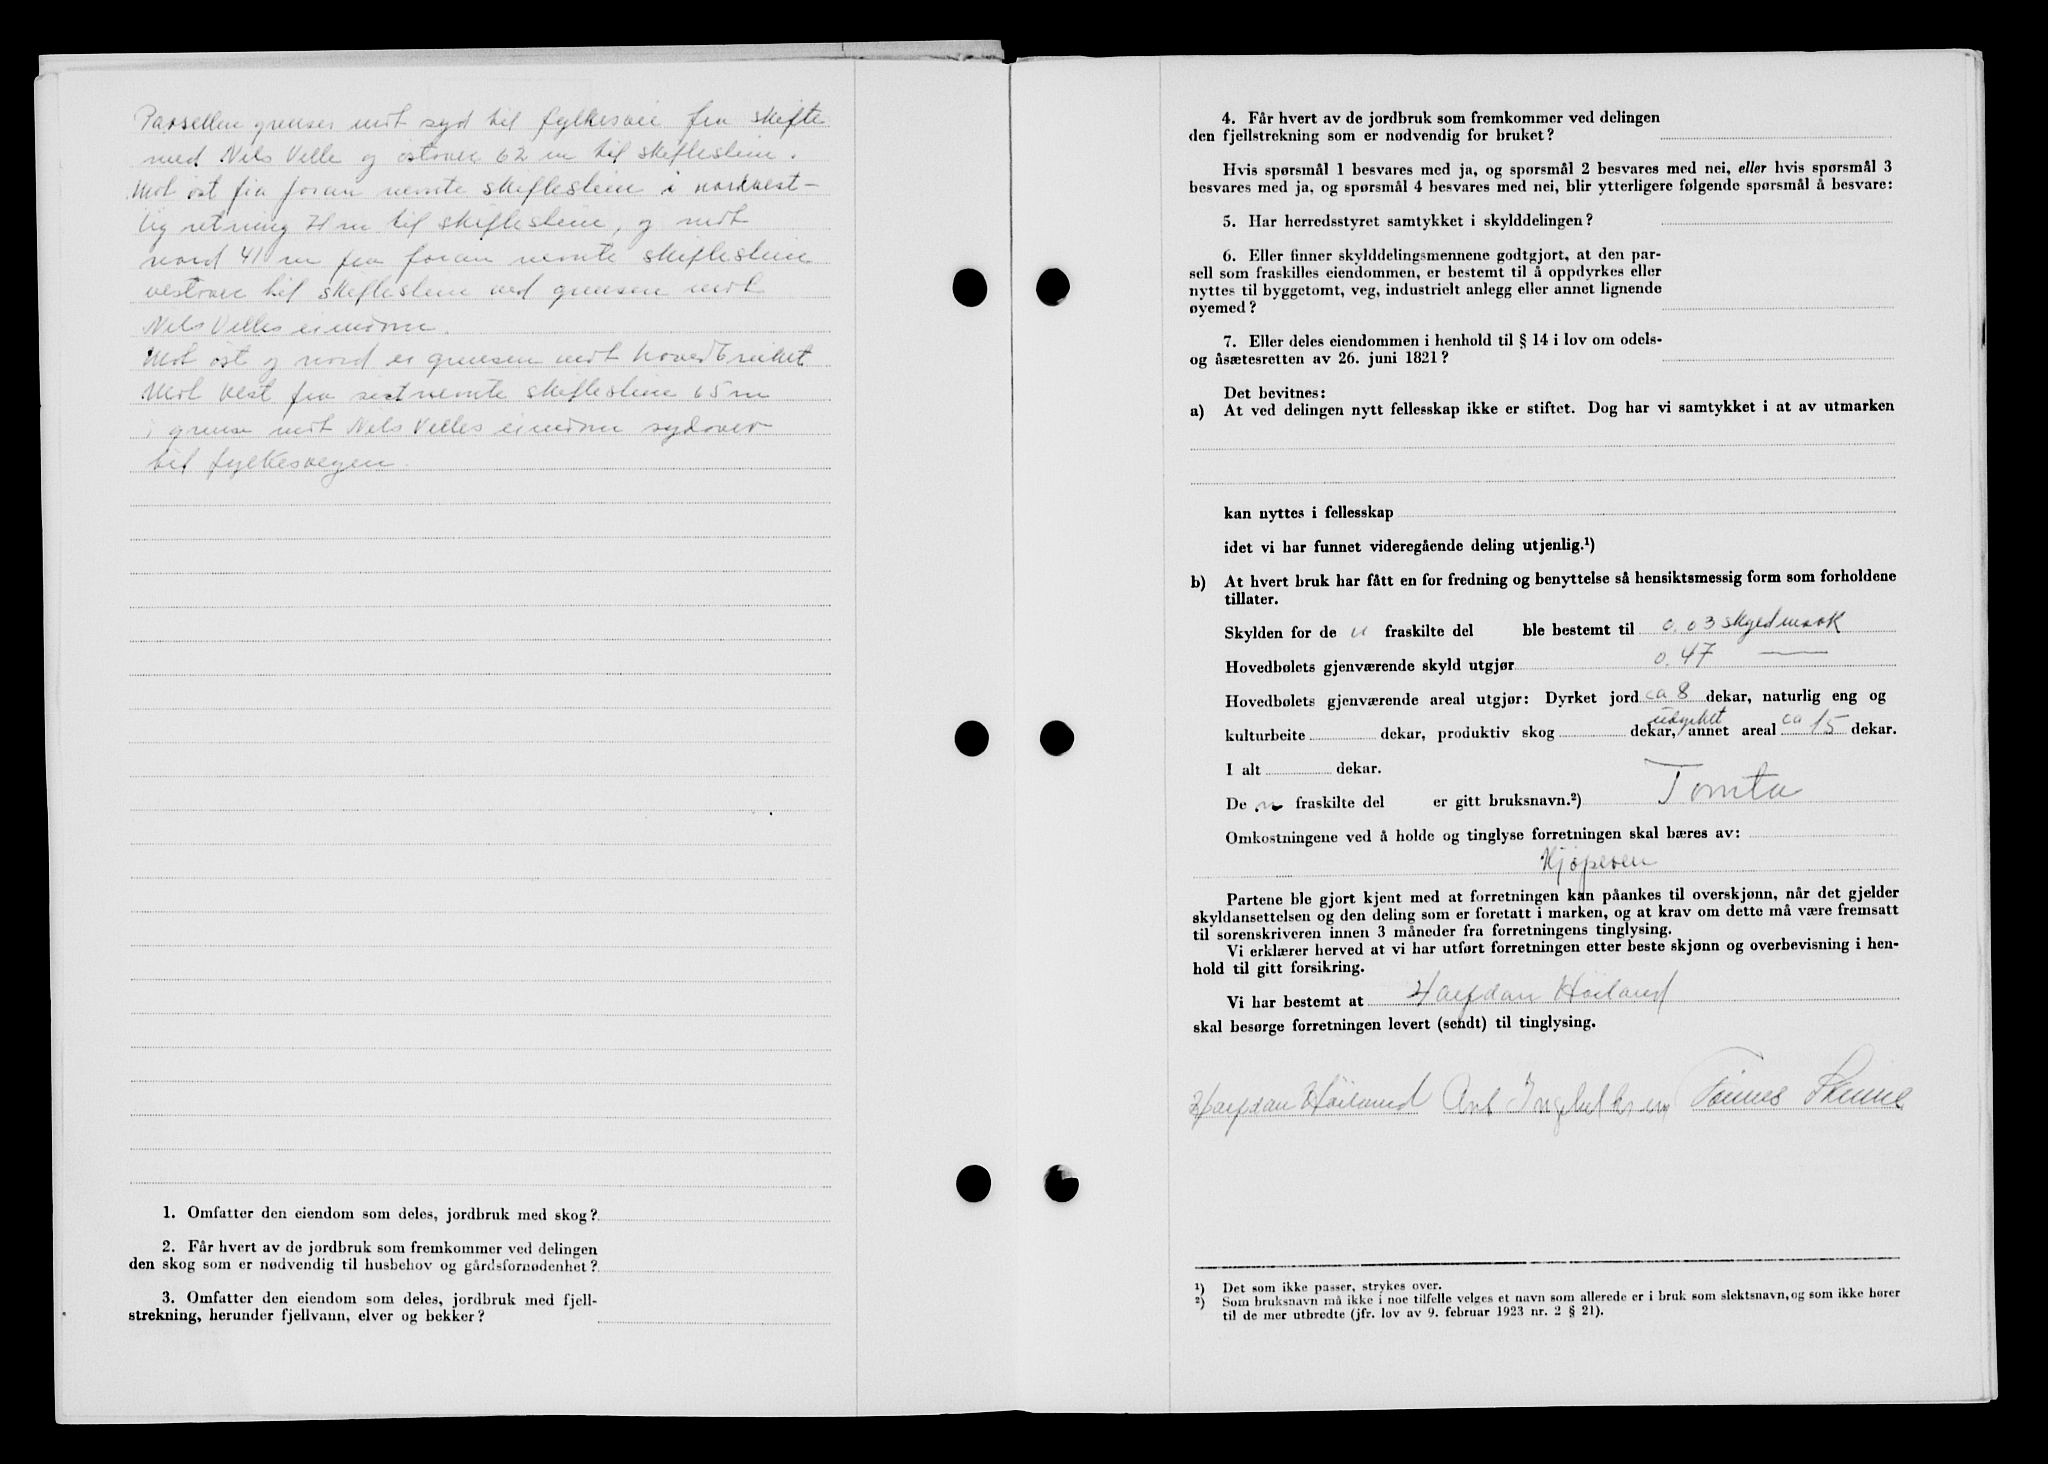 Parsellen grenser mot syd til fylkesvei fra skifte
med Nils Velle og østover 62 m til skiftestein.
Mot øst fra foran nemte skiftestein i nordvest-
lig retning 71 m til skiftestein, og mot
nord 41 m fra foran nemte skiftestein
vestover til skiftestein ved grensen mot
Nils Velles eiendom.
Mot øst og nord er grensen mot hovedbruket
Mot vest fra sistnemte skiftestein 65 m
i grense mot Nils Velles eiendom sydover
til fylkesvegen.
1. Omfatter den eiendom som deles, jordbruk med skog?
2. Får hvert av de jordbruk som fremkommer ved delingen
den skog som er nødvendig til husbehov og gårdsfornødenhet?
3. Omfatter den eiendom som deles, jordbruk med fjell-
strekning, herunder fjellvann, elver og bekker?
4. Får hvert av de jordbruk som fremkommer ved delingen
den fjellstrekning som er nødvendig for bruket?
Hvis spørsmål 1 besvares med ja, og spørsmål 2 besvares med nei, eller hvis spørsmål 3
besvares med ja, og spørsmål 4 besvares med nei, blir ytterligere følgende spørsmål å besvare:
5. Har herredsstyret samtykket i skylddelingen?
6. Eller finner skylddelingsmennene godtgjort, at den par-
sell som fraskilles eiendommen, er bestemt til å oppdyrkes eller
nyttes til byggetomt, veg, industrielt anlegg eller annet lignende
øyemed?
7. Eller deles eiendommen i henhold til § 14 i lov om odels-
og åsætesretten av 26. juni 1821?
Det bevitnes:
a) At ved delingen nytt fellesskap ikke er stiftet. Dog har vi samtykket i at av utmarken
kan nyttes i fellesskap
idet vi har funnet videregående deling utjenlig.¹)
b) At hvert bruk har fått en for fredning og benyttelse så hensiktsmessig form som forholdene
tillater.
Skylden for de n fraskilte del ble bestemt til 0.03 skyldmark
Hovedbølets gjenværende skyld utgjør 0.47 —
Hovedbølets gjenværende areal utgjør: Dyrket jord ca 8 dekar, naturlig eng og
kulturbeite dekar, produktiv skog dekar, udyrket annet areal ca 15 dekar.
I alt dekar.
De n fraskilte del er gitt bruksnavn.²) Tomta
Omkostningene ved å holde og tinglyse forretningen skal bæres av:
Kjøperen
Partene ble gjort kjent med at forretningen kan påankes til overskjønn, når det gjelder
skyldansettelsen og den deling som er foretatt i marken, og at krav om dette må være fremsatt
til sorenskriveren innen 3 måneder fra forretningens tinglysing.
Vi erklærer herved at vi har utført forretningen etter beste skjønn og overbevisning i hen-
hold til gitt forsikring.
Vi har bestemt at Halfdan Høiland
skal besørge forretningen levert (sendt) til tinglysing.
Halfdan Høiland Tønnes
¹) Det som ikke passer, strykes over.
²) Som bruksnavn må ikke i noe tilfelle velges et navn som allerede er i bruk som slektsnavn, og som ikke hører
til de mer utbredte (jfr. lov av 9. februar 1923 nr. 2 § 21).